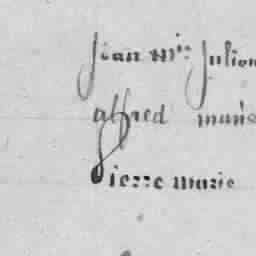 jean m.ie julien
alfred marie
Pierre marie